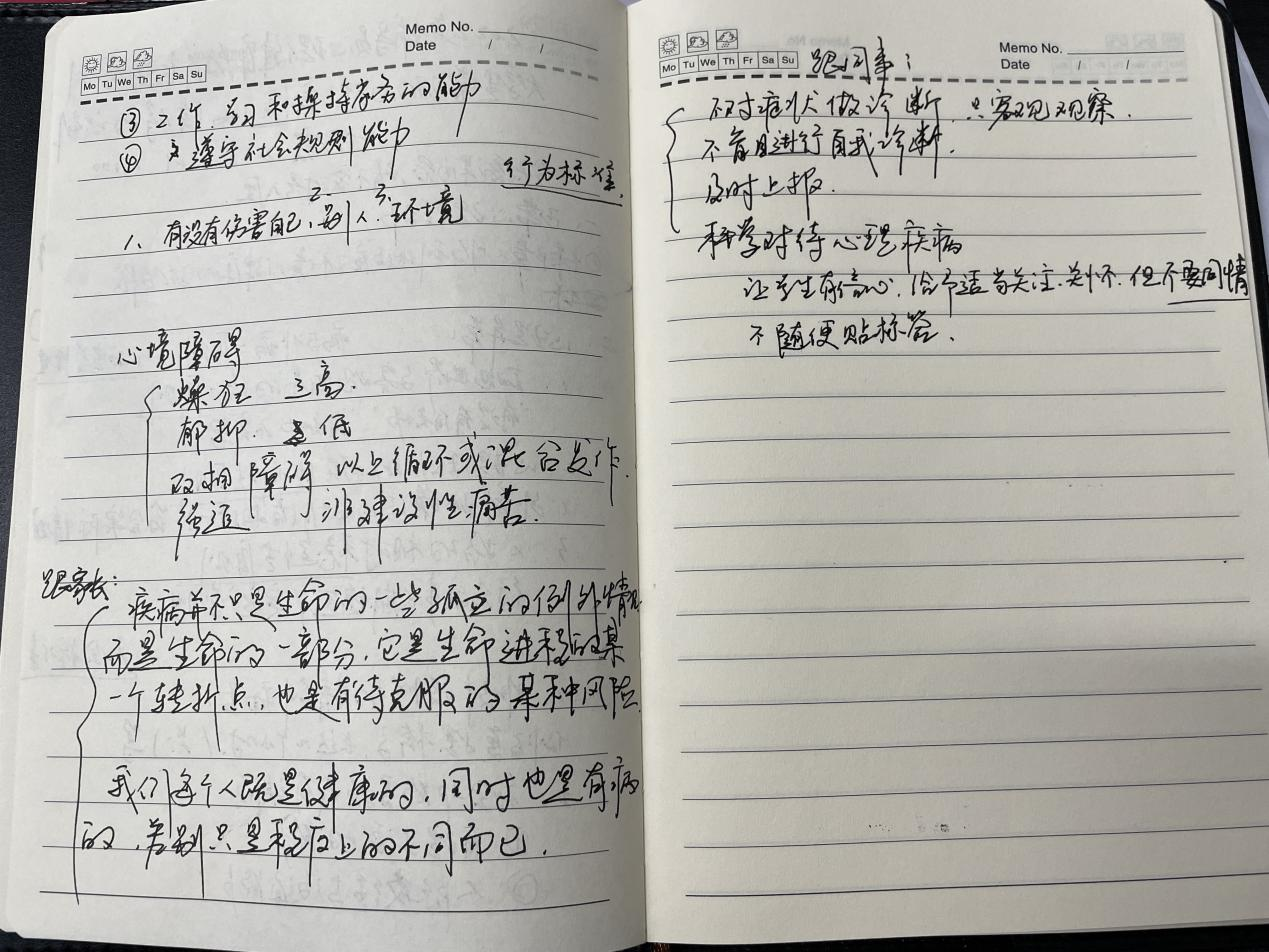 Memo No.
Date / /
Mo Tu We Th Fr Sa Su
③ 工作、学习和操持家务的能力
④ 遵守社会规则能力
行为标准.
1、有没有伤害自己, 2.别人. 3.环境
心境障碍
燥狂 三高.
郁抑. 三低
双相障碍 以上循环或混合发作.
强迫 非建设性痛苦.
跟家长:
疾病并不只是生命的一些孤立的例外情况
而是生命的一部分, 它是生命进程的某
一个转折点, 也是有待克服的某种风险.
我们每个人既是健康的, 同时也是有病
的, 差别只是程度上的不同而已.
Memo No.
Date / /
Mo Tu We Th Fr Sa Su
跟同事:
不对症状做诊断, 只客观观察.
不盲目进行自我诊断.
及时上报.
科学对待心理疾病
让学生有信心, 给予适当关注、关怀, 但不要同情
不随便贴标签.